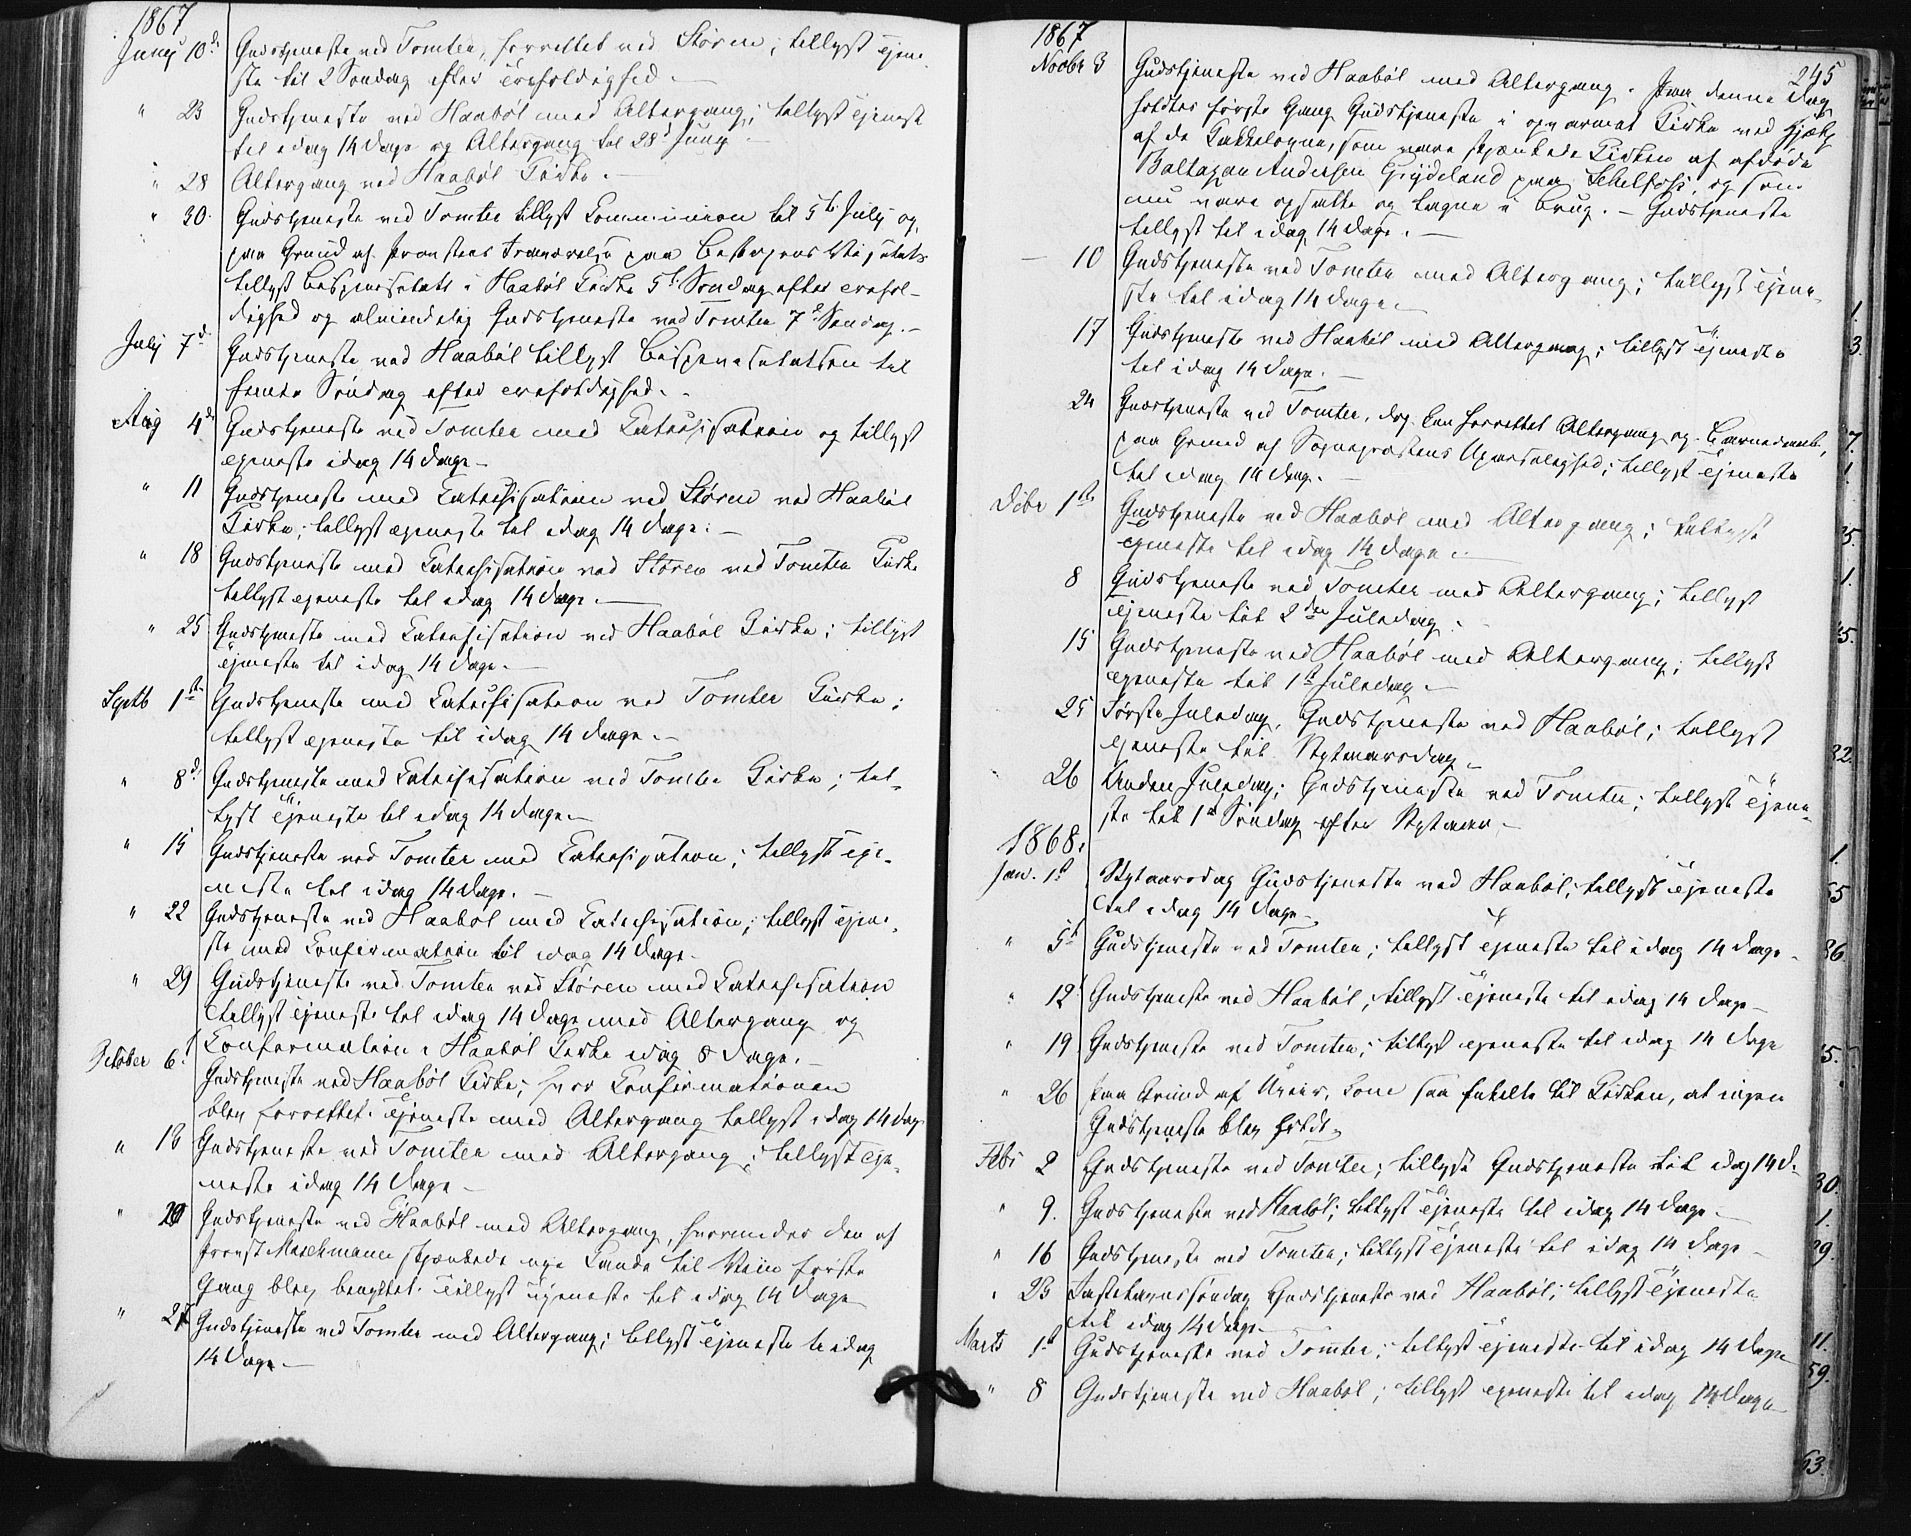 1867
Junij 10d Gudstjeneste ved Tomter, forrettet ved Støren; tillyst Tjene-
ste til 2 Søndag efter Trefoldighed. —
" 23 Gudstjeneste ved Haabøl med Altergang; tillyst Tjeneste
til idag 14 Dage og Altergang til 28d Junij —
" 28 Altergang ved Haabøl Kirke. —
" 30. Gudstjeneste ved Tomter tillyst Communion til 5te Julij og,
paa Grund af Provstens Fraværelse paa Bispens Visitats
tillyst Bispevisitats i Haabøl Kirke 5te Søndag efter Trefol-
dighed og almindelig Gudstjeneste ved Tomter 7d Søndag. —
Julij 7d Gudstjeneste ved Haabøl tillyst Bispevisitatsen til
femte Søndag efter Trefoldighed.
Aug 4de Gudstjeneste ved Tomter med Catechisation og tillyst
Tjeneste idag 14 Dage —
" 11 Gudstjeneste med Catechisation ved Støren ved Haabøl
Kirke; tillyst Tjeneste til idag 14 Dage. —
" 18 Gudstjeneste med Catechisation ved Støren ved Tomter Kirke
tillyst Tjeneste til idag 14 Dage. —
" 25 Gudstjeneste med Catechisation ved Haabøl Kirke; tillyst
Tjeneste til idag 14 Dage. —
Septb 1ste Gudstjeneste med Catechisation ved Tomter Kirke;
tillyst Tjeneste til idag 14 Dage. —
" 8d Gudstjeneste med Catechisation ved Tomter Kirke; til-
lyst Tjeneste til idag 14 Dage —
" 15 Gudstjeneste ved Tomter med Catechisation; tillyst Tje-
neste til idag 14 Dage. —
" 22 Gudstjeneste ved Haabøl med Catechisation; tillyst Tjene-
ste med Confirmation til idag 14 Dage.
" 29 Gudstjeneste ved Tomter ved Støren med Catechisation
tillyst Tjeneste til idag 14 Dage med Altergang og
Confirmation i Haabøl Kirke idag 8 Dage.
October 6. Gudstjeneste ved Haabøl Kirke; hvor Confirmationen
blev forrettet. Tjeneste med Altergang tillyst idag 14 Dag
" 13 Gudstjeneste ved Tomter med Altergang; tillyst Tje-
neste idag 14 Dage —
" 20 Gudstjeneste ved Haabøl med Altergang, hvorunder den af
Provst Maschmann skjænkede nye Kande til Viin første
Gang blev benyttet. Tillyst Tjeneste til idag 14 Dage
" 27 Gudstjeneste ved Tomter med Altergang; tillyst Tjeneste til idag
14 Dage. —
245
1867
Novbr 3 Gudstjeneste ved Haabøl med Altergang. Paa denne Dag
holdtes første Gang Gudstjeneste i opvarmet Kirke ved Hjælp
af de Kakkelovne, som vare skjænkede Kirken af afdøde
Baltazar Andersen Grydeland paa Schelfoss, og som
nu vare opsatte og tagne i Brug. — Gudstjeneste
tillyst til idag 14 Dage. —
— 10 Gudstjeneste ved Tomter med Altergang; tillyst Tjene-
ste til idag 14 Dage.
17 Gudstjeneste ved Haabøl med Altergang; tillyst Tjeneste
til idag 14 Dage. —
24 Gudstjeneste ved Tomter, dog kun forrettet Altergang og Barnedaab,
paa Grund af Sognepræstens Upasselighed; tillyst Tjeneste
til idag 14 Dage. —
Decbr 1ste Gudstjeneste ved Haabøl med Altergang; tillyst
Tjeneste til idag 14 Dage. —
8 Gudstjeneste ved Tomter med Altergang; tillyst
Tjeneste til 2den Juledag.
15 Gudstjeneste ved Haabøl med Altergang; tillyst
Tjeneste til 1st Juledag. —
25 Første Juledag, Gudstjeneste ved Haabøl; tillyst
Tjeneste til Nytaarsdag —
26 Anden Juledag; Gudstjeneste ved Tomter; tillyst Tjene-
ste til 1st Søndag efter Nytaar —
1868.
Jan. 1st Nytaarsdag Gudstjeneste ved Haabøl; tillyst Tjeneste
til idag 14 Dage —
" 5t Gudstjeneste ved Tomter; tillyst Tjeneste til idag 14 Dage —
" 12 Gudstjeneste ved Haabøl; tillyst Tjeneste til idag 14 Dage —
" 19 Gudstjeneste ved Tomter; tillyst Tjeneste til idag 14 Dage
" 26 Paa Grund af Uveir, kom saa faa til Kirken, at ingen
Gudstjeneste blev holdt.
Febr 2 Gudstjeneste ved Tomter; tillyst Gudstjeneste til idag 14 D.
" 9. Gudstjeneste ved Haabøl; tillyst Tjeneste til idag 14 Dage. —
" 16 Gudstjeneste ved Tomter; tillyst Tjeneste til idag 14 Dage —
" 23 Fastelavnssøndag Gudstjeneste ved Haabøl; tillyst Tjeneste
til idag 14 Dage. —
Marts 1st Gudstjeneste ved Tomter; tillyst Tjeneste til idag 14 Dage
" 8 Gudstjeneste ved Haabøl; tillyst Tjeneste til idag 14 Dage